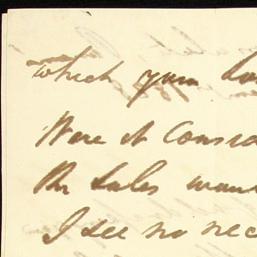 which your
Were it Consid
the Sales
I see no nec